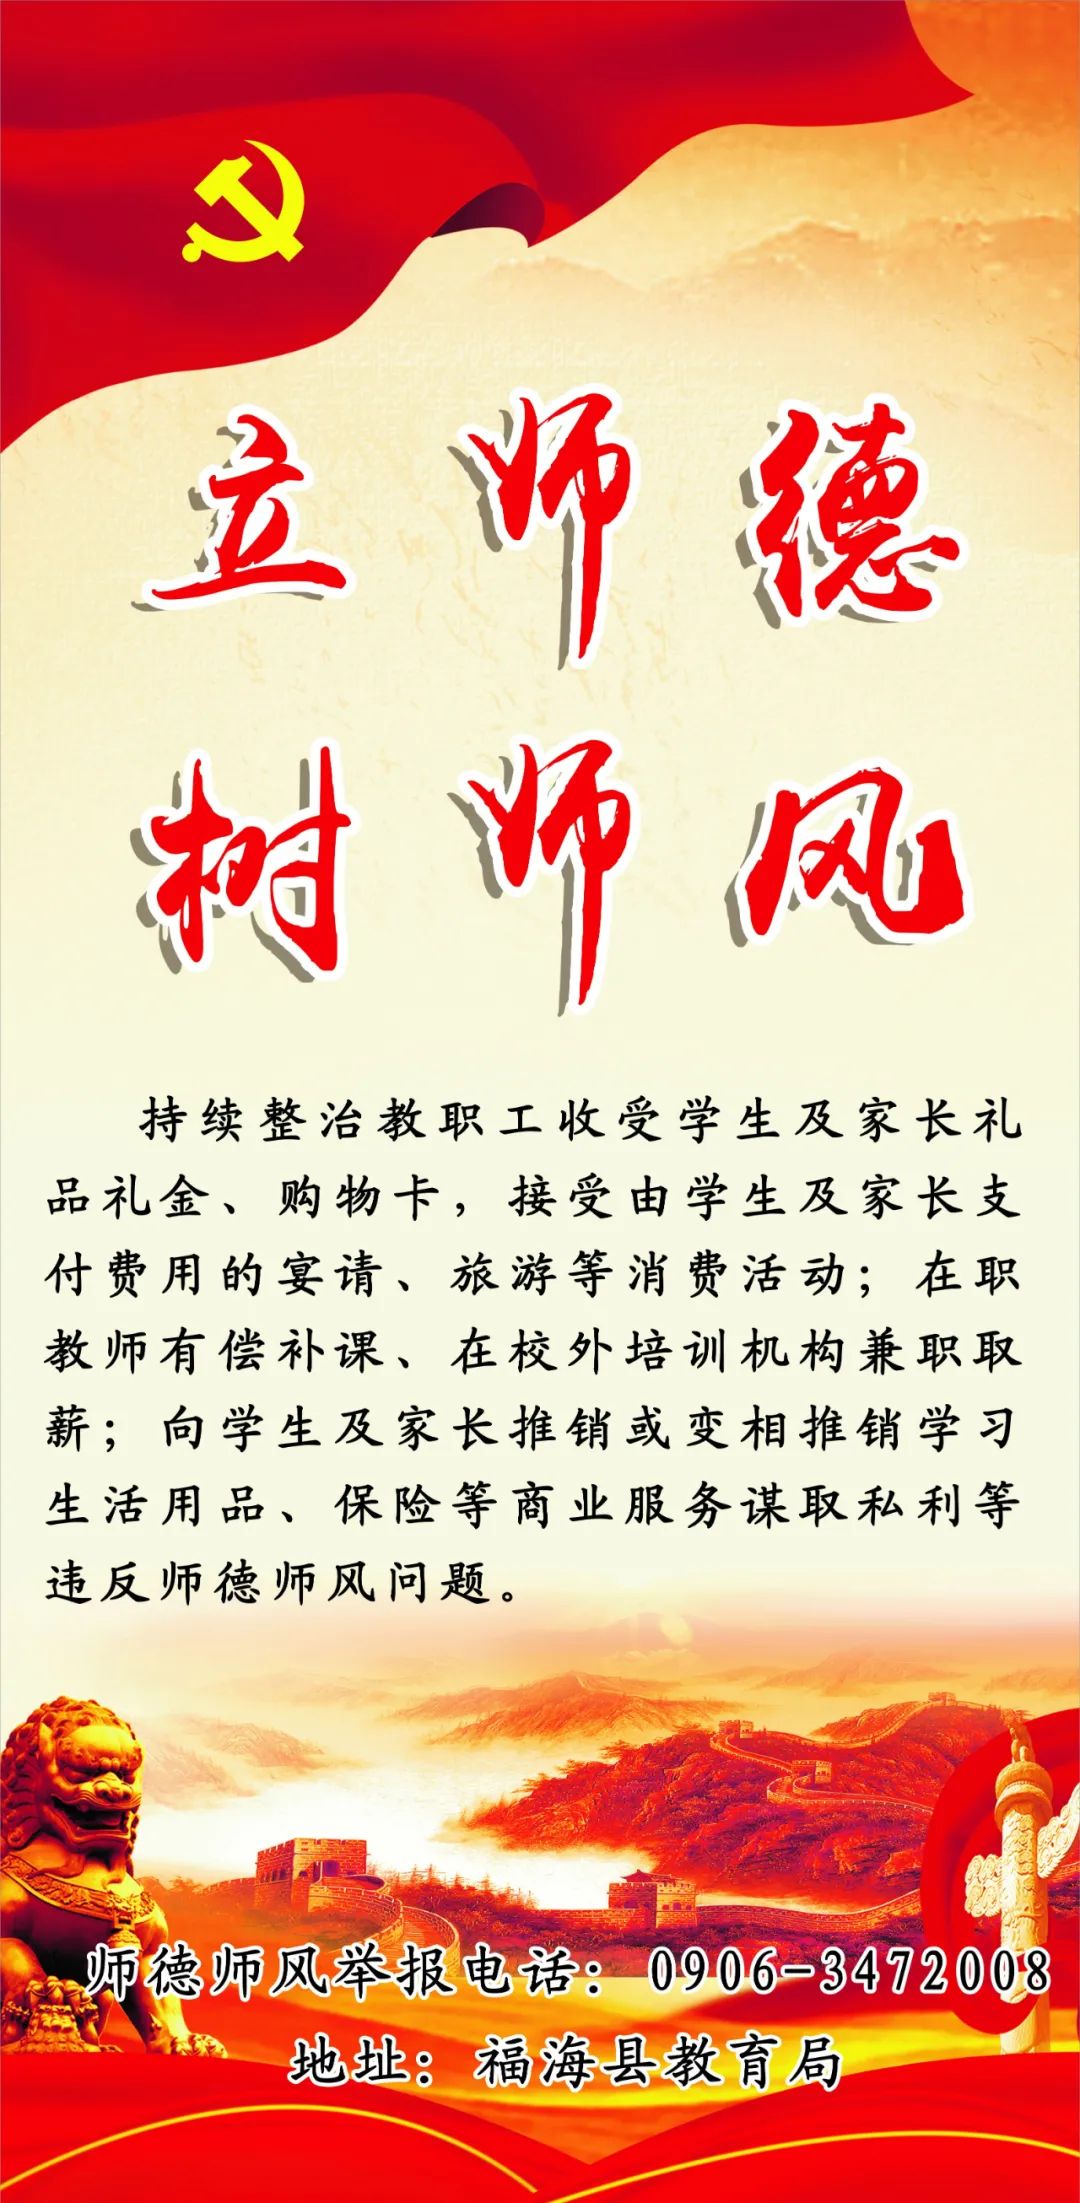 立师德
树师风
持续整治教职工收受学生及家长礼
品礼金、购物卡，接受由学生及家长支
付费用的宴请、旅游等消费活动；在职
教师有偿补课、在校外培训机构兼职取
薪；向学生及家长推销或变相推销学习
生活用品、保险等商业服务谋取私利等
违反师德师风问题。
师德师风举报电话：0906-3472008
地址：福海县教育局